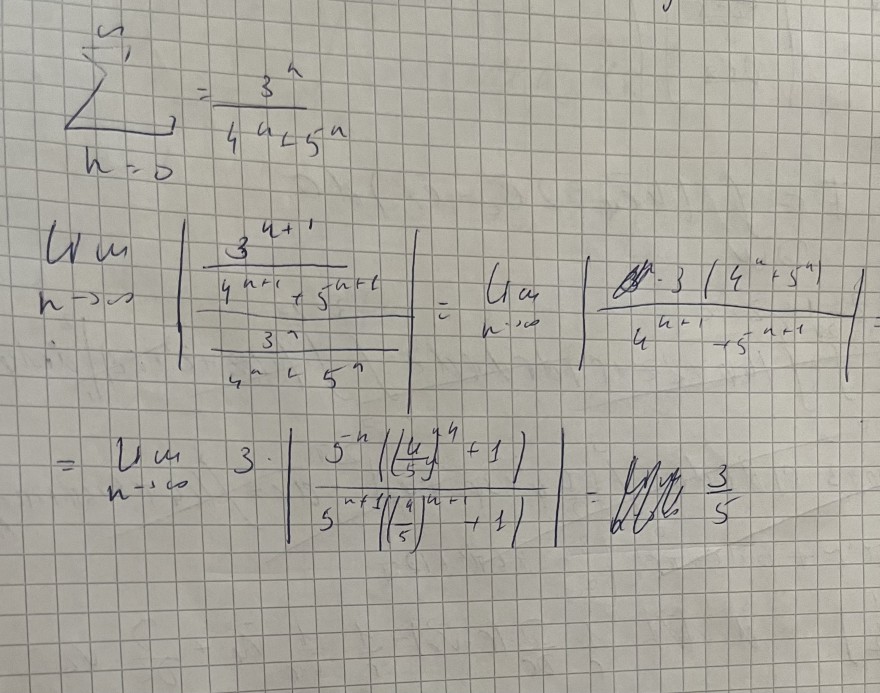 ∞
∑ = 3^n / (4^n + 5^n)
n = 0
lim n→∞ | (3^{n+1} / (4^{n+1} + 5^{n+1})) / (3^n / (4^n + 5^n)) | = lim n→∞ | · 3 (4^n + 5^n) / (4^{n+1} + 5^{n+1}) | =
= lim n→∞ 3 · | 5^n ((4/5)^n + 1) / (5^{n+1} ((4/5)^{n+1} + 1)) | = 3/5